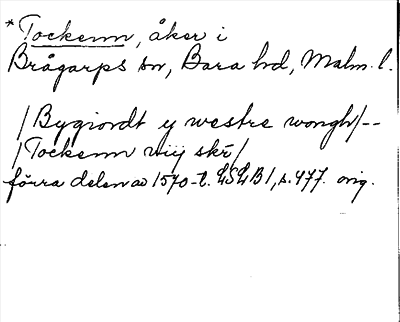 *Tockenn, åker i
Brågarps sn, Bara hd, Malm. l.
/Bygiordt y westre wongh/--
/Tockenn viij skr/
förra delen av 1570-t. LSLB1, s. 477. orig.